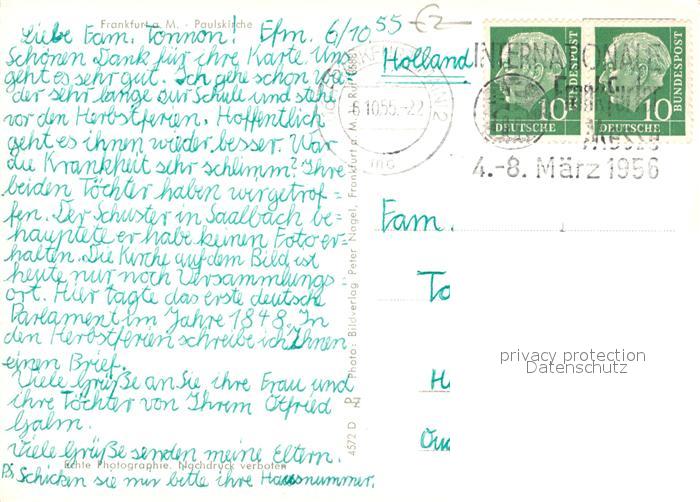 Frankfurt a. M. - Paulskirche
Liebe Fam. Tonnon! Ffm. 6/10 55
Schönen Dank für ihre Karte. Uns
geht es sehr gut. Ich gehe schon wie=
der sehr lange zur Schule und stehe
vor den Herbstferien. Hoffentlich
geht es ihnen wieder besser. War
die Krankheit sehr schlimm? Ihre
beiden Töchter haben wir getrof=
fen. Der Schuster in Saalbach be=
hauptete er habe keinen Foto er=
halten. Die Kirche auf dem Bild ist
heute nur noch Versammlungs=
ort. Hier tagte das erste deutsche
Parlament im Jahre 1848. In
den Herbstferien schreibe ich Ihnen
einen Brief.
Viele Grüße an Sie ihre Frau und
ihre Töchter von Ihrem Otfried
Galm.
Viele Grüße senden meine Eltern.
Echte Photographie. Nachdruck verboten
PS Schicken sie mir bitte ihre Hausnummer.
4572 D
Photo: Bildverlag Peter Nagel, Frankfurt a. M.
Holland
6.10.55.-22
INTERNATIONALE
Frankfurter
Messe
4.-8. März 1956
10
DEUTSCHE
BUNDESPOST
10
DEUTSCHE
BUNDESPOST
Fam.
To
H
privacy protection
Datenschutz